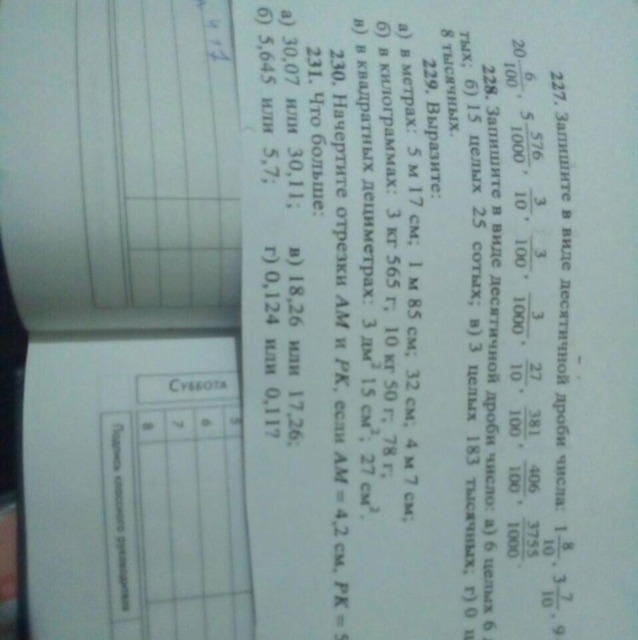 227. Запишите в виде десятичной дроби числа: 1 8/10, 3 7/10, 9
20 6/100, 5 576/1000, 3/10, 3/100, 3/1000, 27/10, 381/100, 406/100, 3755/1000.
228. Запишите в виде десятичной дроби число: а) 6 целых 6
тых; б) 15 целых 25 сотых; в) 3 целых 183 тысячных; г) 0
8 тысячных.
229. Выразите:
а) в метрах: 5 м 17 см; 1 м 85 см; 32 см; 4 м 7 см;
б) в килограммах: 3 кг 565 г; 10 кг 50 г; 78 г;
в) в квадратных дециметрах: 3 дм² 15 см²; 27 см².
230. Начертите отрезки AM и PK, если AM = 4,2 см, PK =
231. Что больше:
а) 30,07 или 30,11; в) 18,26 или 17,26;
б) 5,645 или 5,7; г) 0,124 или 0,11?
Суббота
6
7
8
Подпись классного руководителя